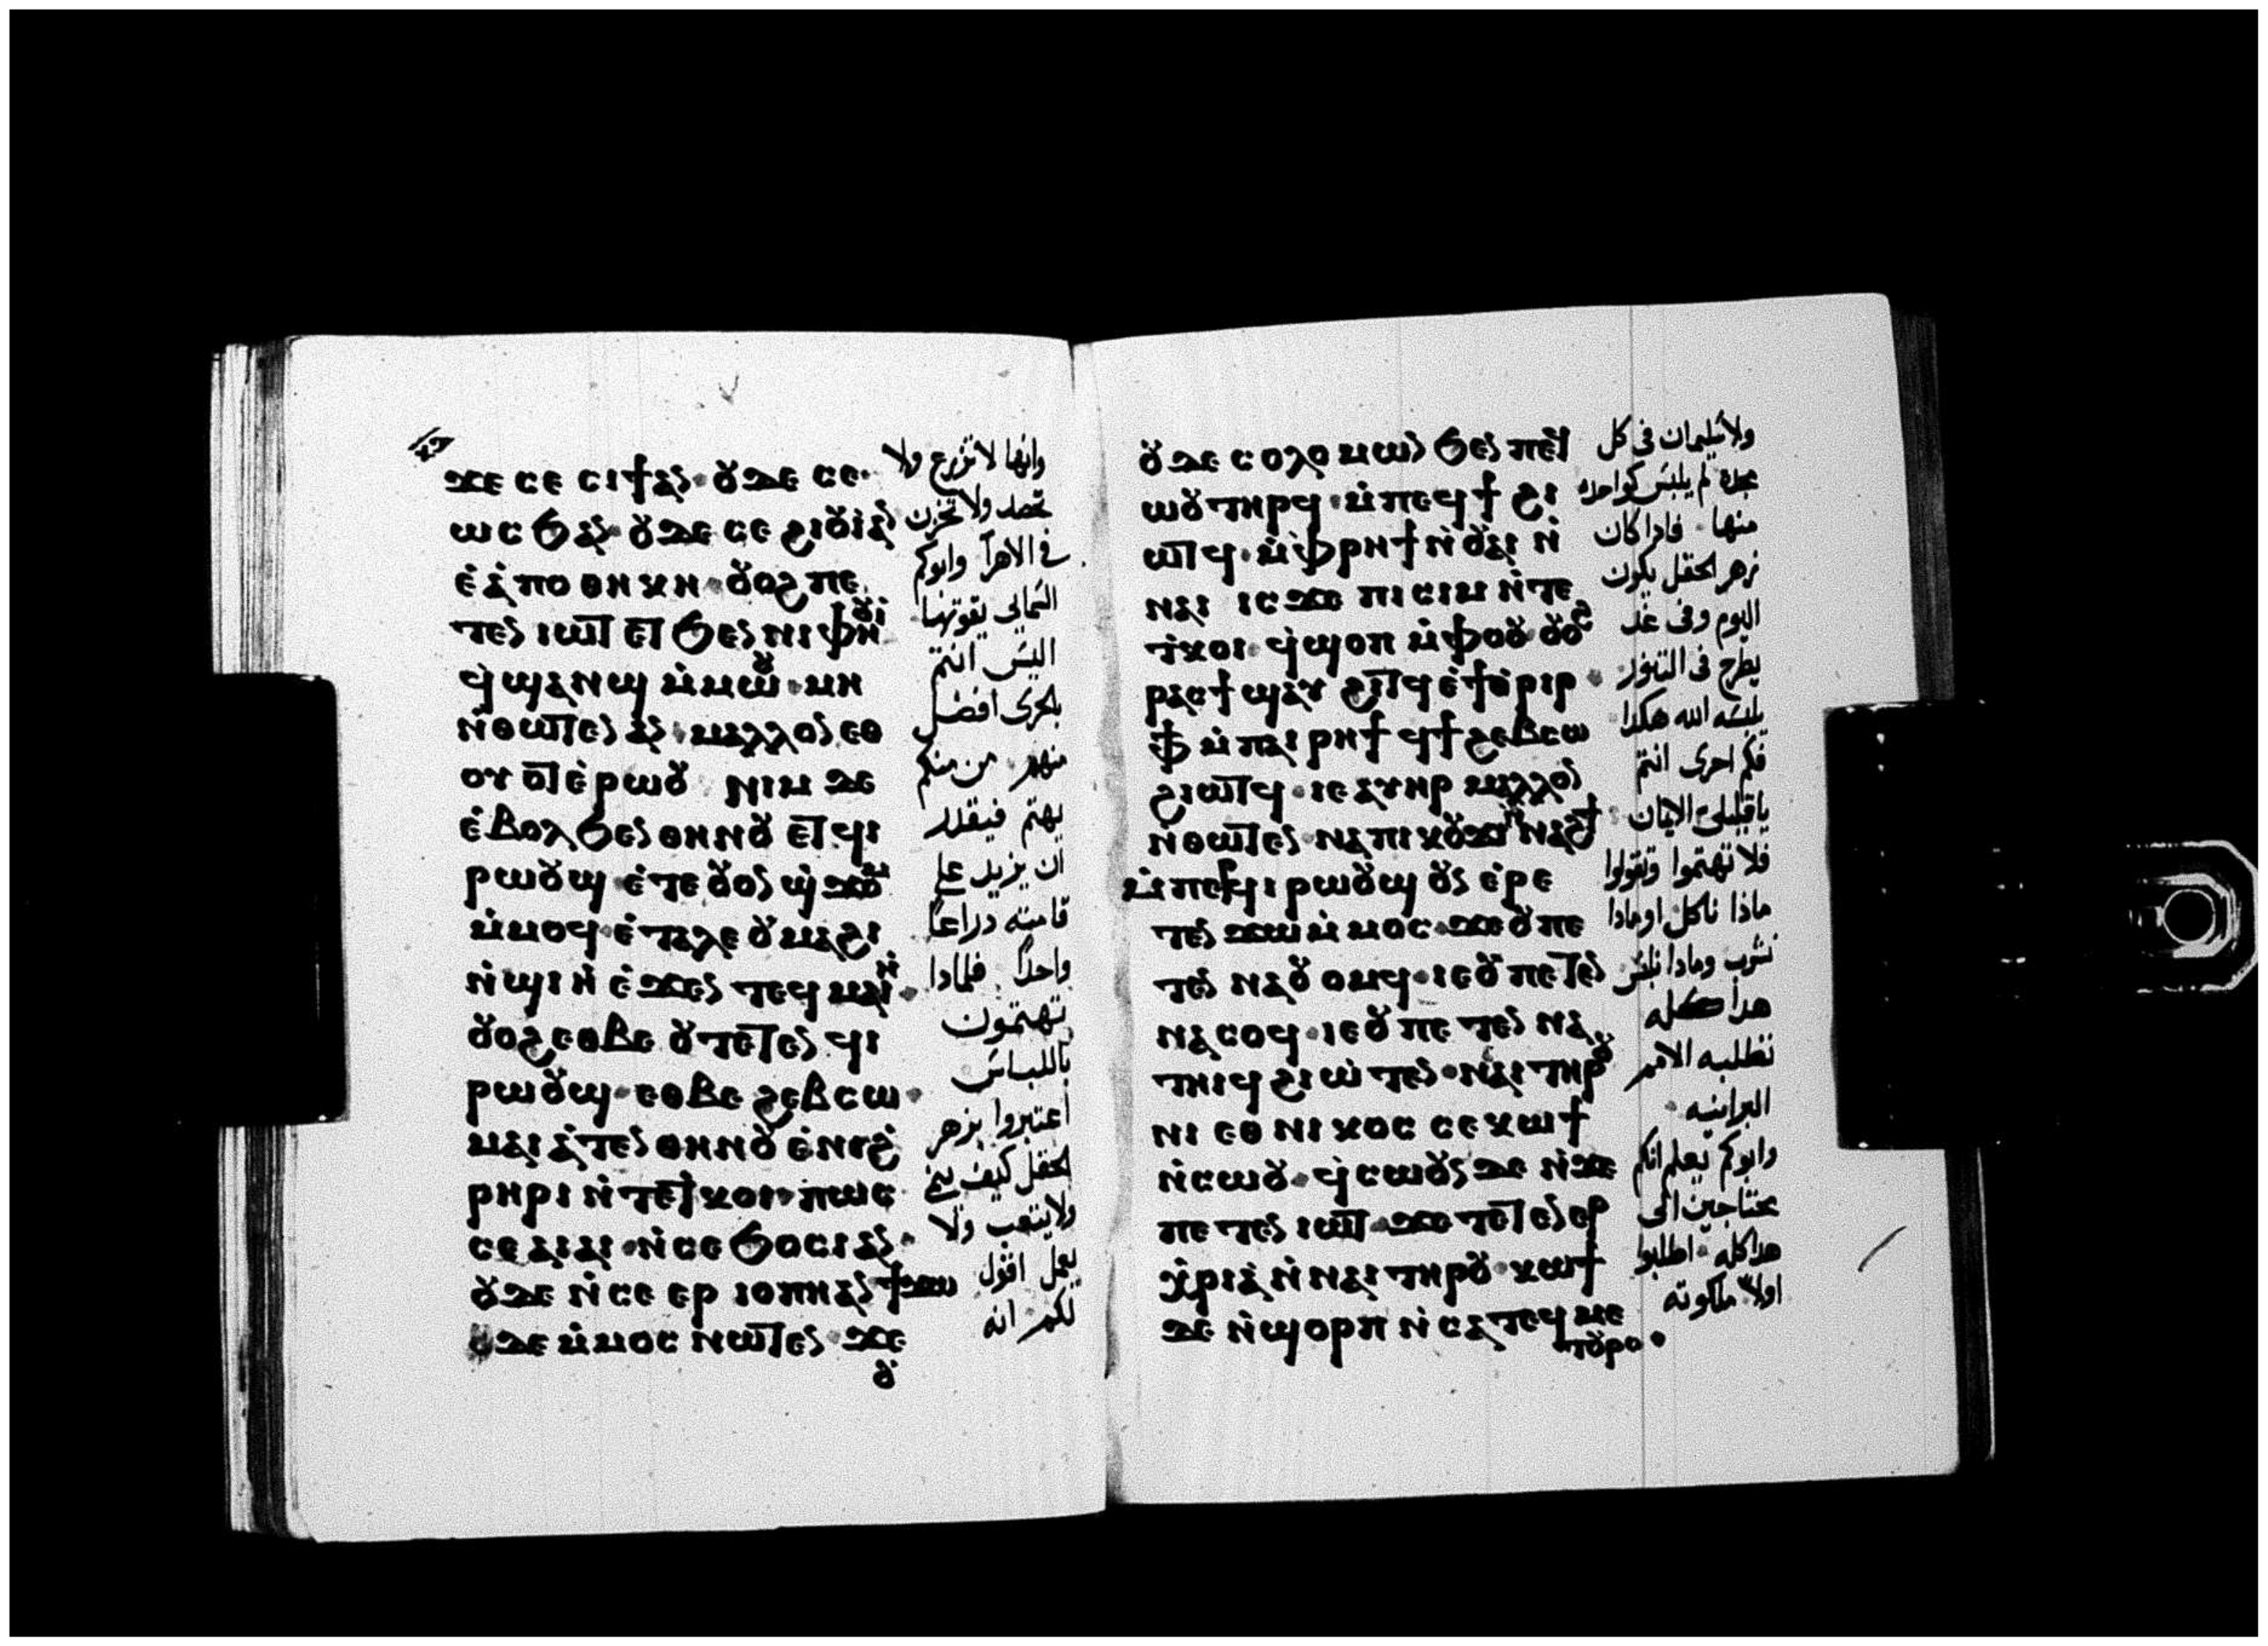 ϫⲉ ⲥⲉ ⲥⲓϯⲁⲛ · ⲟⲩⲇⲉ ⲥⲉ
ⲱⲥϧⲁⲛ · ⲟⲩⲇⲉ ⲥⲉ ϩⲓⲟⲩⲓ̀ⲁⲛ
ⲉ̀ⲁ̀ⲡⲟⲑⲏⲕⲏ · ⲟⲩⲟϩ ⲡⲉ
ⲧⲉⲛ ⲓⲱⲧ ⲉⲧ ϧⲉⲛ ⲛⲓⲫⲏⲟⲩⲓ
ϥ̀ϣⲁⲛϣ ⲙ̀ⲙⲱⲟⲩ · ⲙⲏ
ⲛ̀ⲑⲱⲧⲉⲛ ⲁⲛ · ⲙⲁⲗⲗⲟⲛ ⲉⲑ
ⲟⲩⲟⲧ ⲉ̀ⲣⲱⲟⲩ ⲛⲓⲙ ⲇⲉ
ⲉ̀ⲃⲟⲗ ϧⲉⲛ ⲑⲏⲛⲟⲩ ⲉⲧϥⲓ
ⲣⲱⲟⲩϣ · ⲉ̀ⲧⲉ ⲟⲩⲟⲛ ϣ̀ϫⲟⲙ
ⲙ̀ⲙⲟϥ · ⲉ̀ⲧⲁⲗⲉ ⲟⲩⲙⲁϩⲓ
ⲛ̀ϣⲓⲏ ⲉ̀ϫⲉⲛ ⲧⲉϥⲙⲁⲓⲏ ·
ⲟⲩⲟϩ ⲉⲑⲃⲉ ⲟⲩ ⲧⲉⲧⲉⲛ ϥⲓ
ⲣⲱⲟⲩϣ · ⲉⲑⲃⲉ ϩⲉⲃⲥⲱ ·
ⲙⲁⲓⲁ̀ⲧⲉⲛ ⲑⲏⲛⲟⲩ ⲉ̀ⲛⲓϩ̀
ⲣⲏⲣⲓ ⲛ̀ⲧⲉ ⲧⲕⲟⲓ · ⲡⲱⲥ
ⲥⲉ ⲁⲓⲁⲓ · ⲛ̀ⲥⲉ ϧⲟⲥⲓ ⲁⲛ ·
ⲟⲩⲇⲉ ⲛ̀ⲥⲉ ⲉⲣ ⲓⲟⲡⲏ ⲁⲛ ϯϫⲱ
ⲇⲉ ⲙ̀ⲙⲟⲥ ⲛⲱⲧⲉⲛ · ϫⲉ
ⲟⲩ
وانها لا تزرع ولا
تحصد ولا تخزن
في الاهرآ وابوكم
السماي يقوتها
اليس انتم
بالحرى افضل
منهم · من منكم
يهتم فيقدر
ان يزيد على
قامته دراعا
واحدا · فلماذا
تهتمون
باللباس
اعتبروا بزهر
الحقل كيف ينمي
ولا يتعب ولا
يعمل اقول
لكم انه
ⲟⲩⲇⲉ ⲥⲟⲗⲟⲙⲱⲛ ϧⲉⲛ ⲡⲉϥ
ⲱⲟⲩ ⲧⲏⲣϥ · ⲙ̀ⲡⲉϥϯ ϩⲓ
ⲱⲧϥ · ⲙ̀ⲫⲣⲏϯ ⲛ̀ⲟⲩⲁⲓ ⲛ̀
ⲛⲁⲓ ⲓⲥϫⲉ ⲡⲓⲥⲓⲙ ⲛ̀ⲧⲉ
ⲧ̀ⲕⲟⲓ · ϥ̀ϣⲟⲡ ⲙ̀ⲫⲟⲟⲩ ⲟⲩⲟϩ
ⲣⲁⲥϯ ϣⲁⲩ ϩⲓⲧϥ ⲉ̀ϯⲑ̀ⲣⲓⲣ ·
ⲫϯ ⲙ̀ⲡⲁⲓⲣⲏϯ ϥϯ ϩⲉⲃⲥⲱ
ϩⲓⲱⲧϥ · ⲓⲉ ⲁⲩⲏⲣ ⲙⲁⲗⲗⲟⲛ
ⲛ̀ⲑⲱⲧⲉⲛ · ⲛⲁ ⲡⲓⲕⲟⲩϫⲓ ⲛ̀ⲛⲁϩϯ
ⲙ̀ⲡⲉⲣϥⲓ ⲣⲱⲟⲩϣ ⲟⲩⲛ ⲉⲣⲉ
ⲧⲉⲛ ϫⲱ ⲙ̀ⲙⲟⲥ · ϫⲉ ⲟⲩ ⲡⲉ
ⲧⲉⲛ ⲛⲁⲟⲩⲟⲙϥ · ⲓⲉ ⲟⲩ ⲡⲉⲧⲉⲛ
ⲛⲁⲥⲟϥ · ⲓⲉ ⲟⲩ ⲡⲉ ⲧⲉⲛ ⲛⲁ
ⲧⲏⲓϥ ϩⲓⲱ̀ⲧⲉⲛ · ⲛⲁⲓ ⲧⲏⲣⲟⲩ
ⲛⲓ ⲉⲑⲛⲓⲕⲟⲥ ⲥⲉ ⲕⲱϯ
ⲛ̀ⲥⲱⲟⲩ · ϥ̀ⲥⲱⲟⲩⲛ ⲇⲉ ⲛ̀ϫⲉ
ⲡⲉ ⲧⲉⲛ ⲓⲱⲧ ϫⲉ ⲧⲉⲧⲉⲛ ⲉⲣ
ⲭ̀ⲣⲓⲁ̀ ⲛ̀ⲛⲁⲓ ⲧⲏⲣⲟⲩ · ⲕⲱϯ
ⲇⲉ ⲛ̀ϣⲟⲣⲡ ⲛ̀ⲥⲁ ⲧⲉϥⲙⲉ
ⲧⲟⲩⲣⲟ ·
ولا سليمان في كل
مجده لم يلبس كواحده
منها · فادا كان
زهر الحقل يكون
اليوم وفي غد
يطرح في التنور
يلبسه الله هكدا
فكم احرى انتم
يا قليلى الايمان
فلا تهتموا وتقولوا
ماذا ناكل او مادا
نشرب ومادا نلبس
هدا كله
تطلبه الامم
البرانيه
وابوكم يعلم انكم
محتاجين الى
هدا كله · اطلبوا
اولا ملكوته